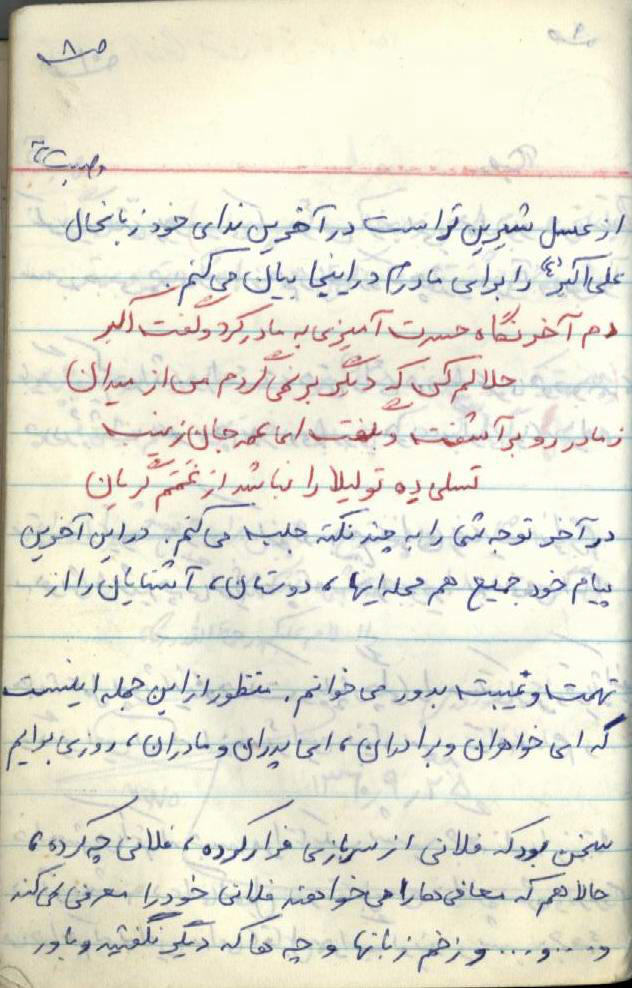 ص ۸
وصیت نامه
از عسل شیرین تر است در آخرین ندای خود زبانحال
علی اکبر (ع) را برای مادرم در اینجا بیان می کنم.
دم آخر نگاه حسرت آمیزی به مادر کرد و گفت اکبر
حلالم کن که دیگر بر نمی گردم من از میدان
ز مادر رو برآشفت و بگفت ای عمه جان زینب
تسلی ده تو لیلا را نباشد از غمم گریان
در آخر توجه شما را به چند نکته جلب می کنم. در این آخرین
پیام خود جمیع هم محله ایها، دوستان، آشنایان را از
تهمت و غیبت بدور می خوانم. منظور از این جمله اینست
که ای خواهران و برادران، ای پدران و مادران، روزی برایم
سخن بود که فلانی از سربازی فرار کرده، فلانی چه کرده،
حالا هم که معافی ها را می خواهند فلانی خود را معرفی نمی کند
و....و... و زخم زبانها و چه ها که دیگر نگفتید و باور